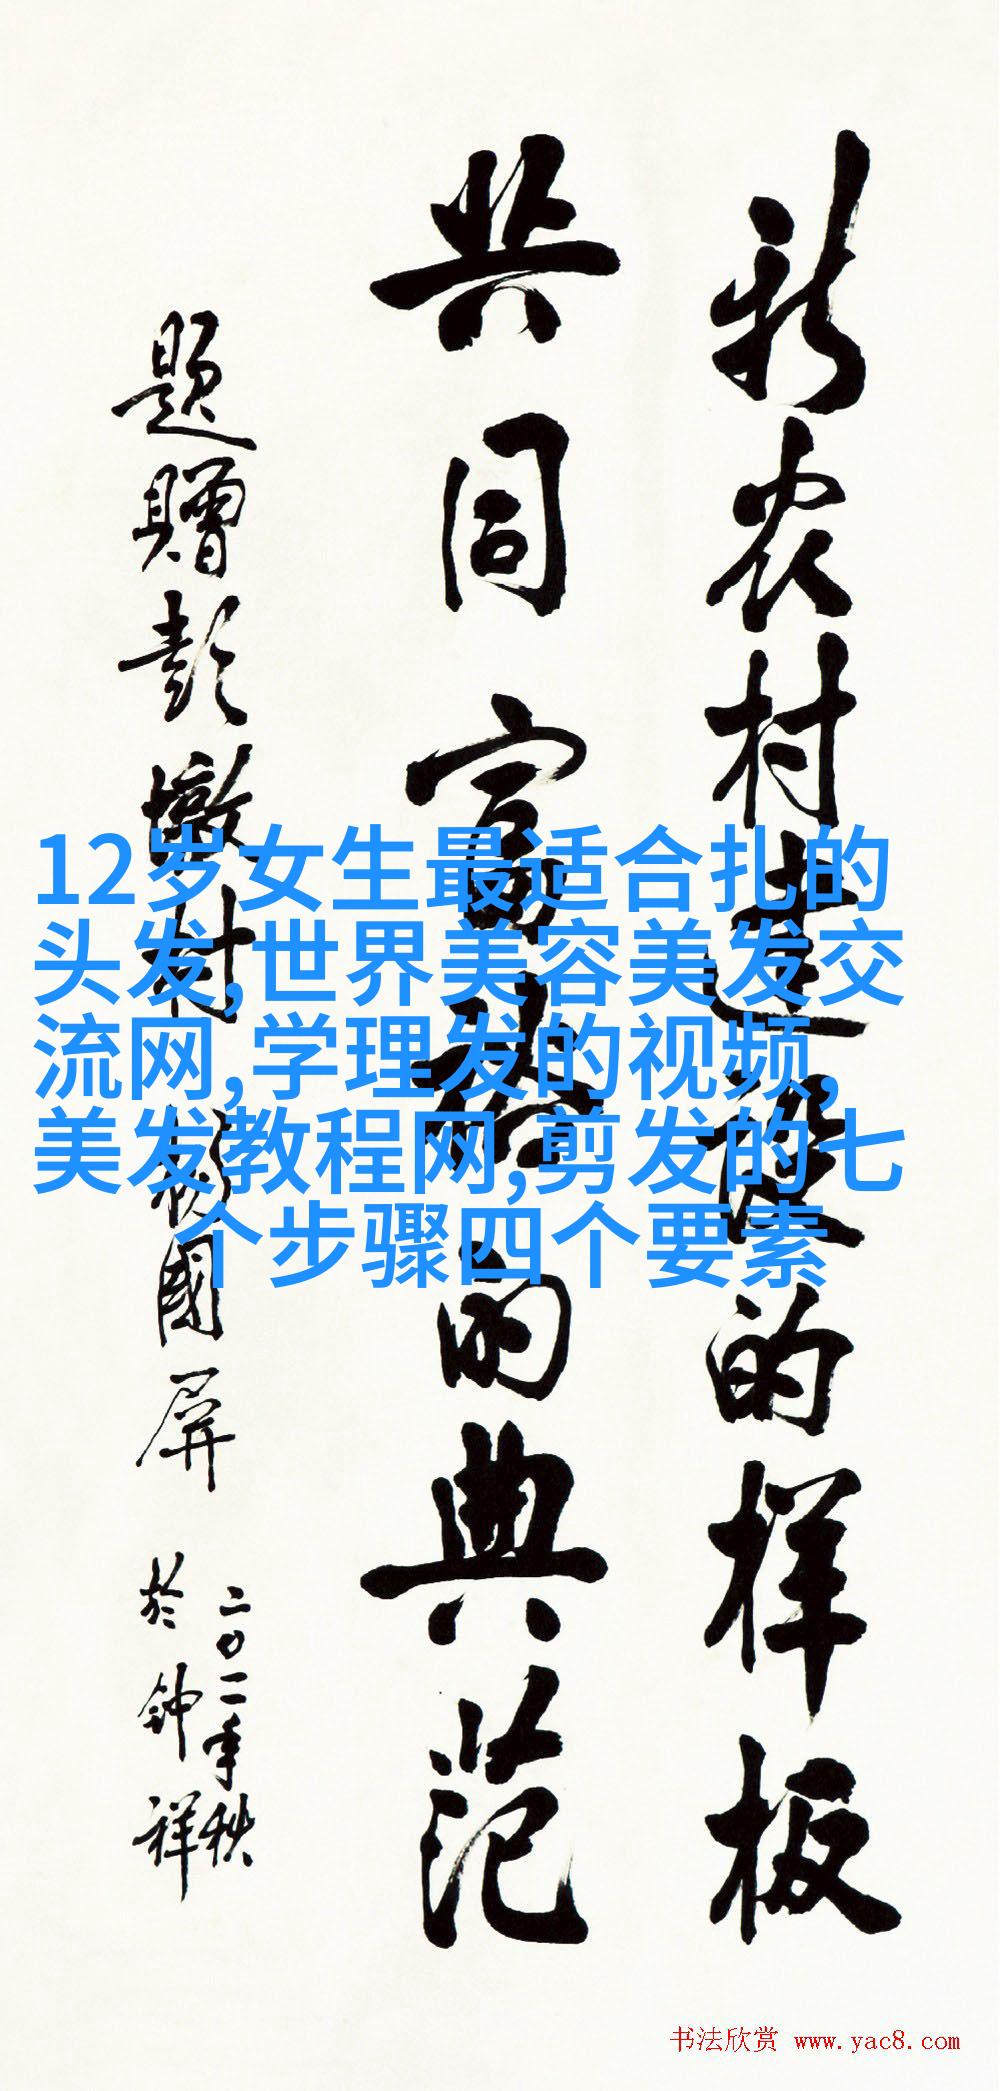 新农村建设的样板
共同富裕的典范
题赠彭墩村
國屏
二〇一一年秋
於钟祥
12岁女生最适合扎的
头发,世界美容美发交
流网,学理发的视频,
美发教程网,剪发的七
个步骤四个要素
书法欣赏 www.yac8.com